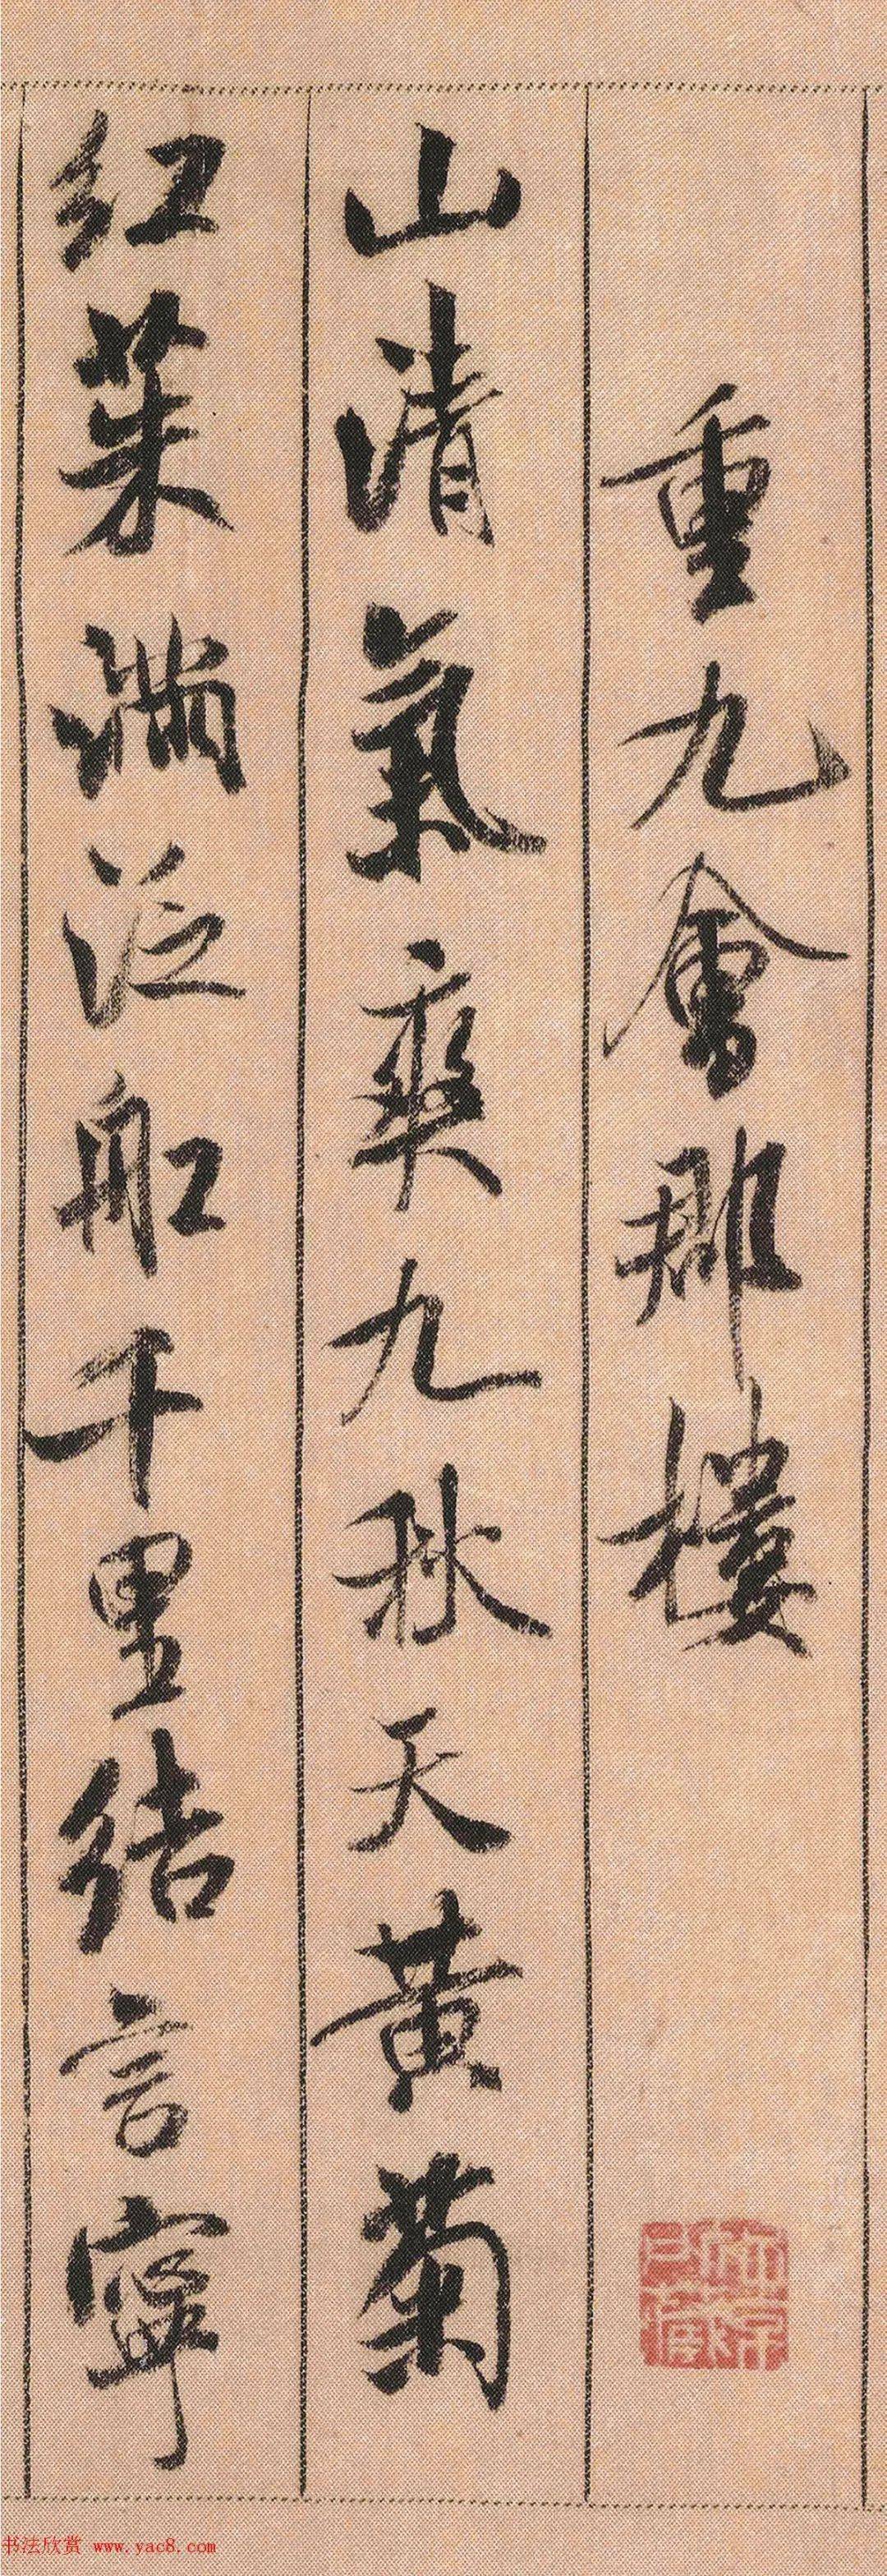 重九會郡樓
山清氣爽九秋天黃菊
紅茱滿泛船千里結言寧
书法欣赏 www.yac8.com